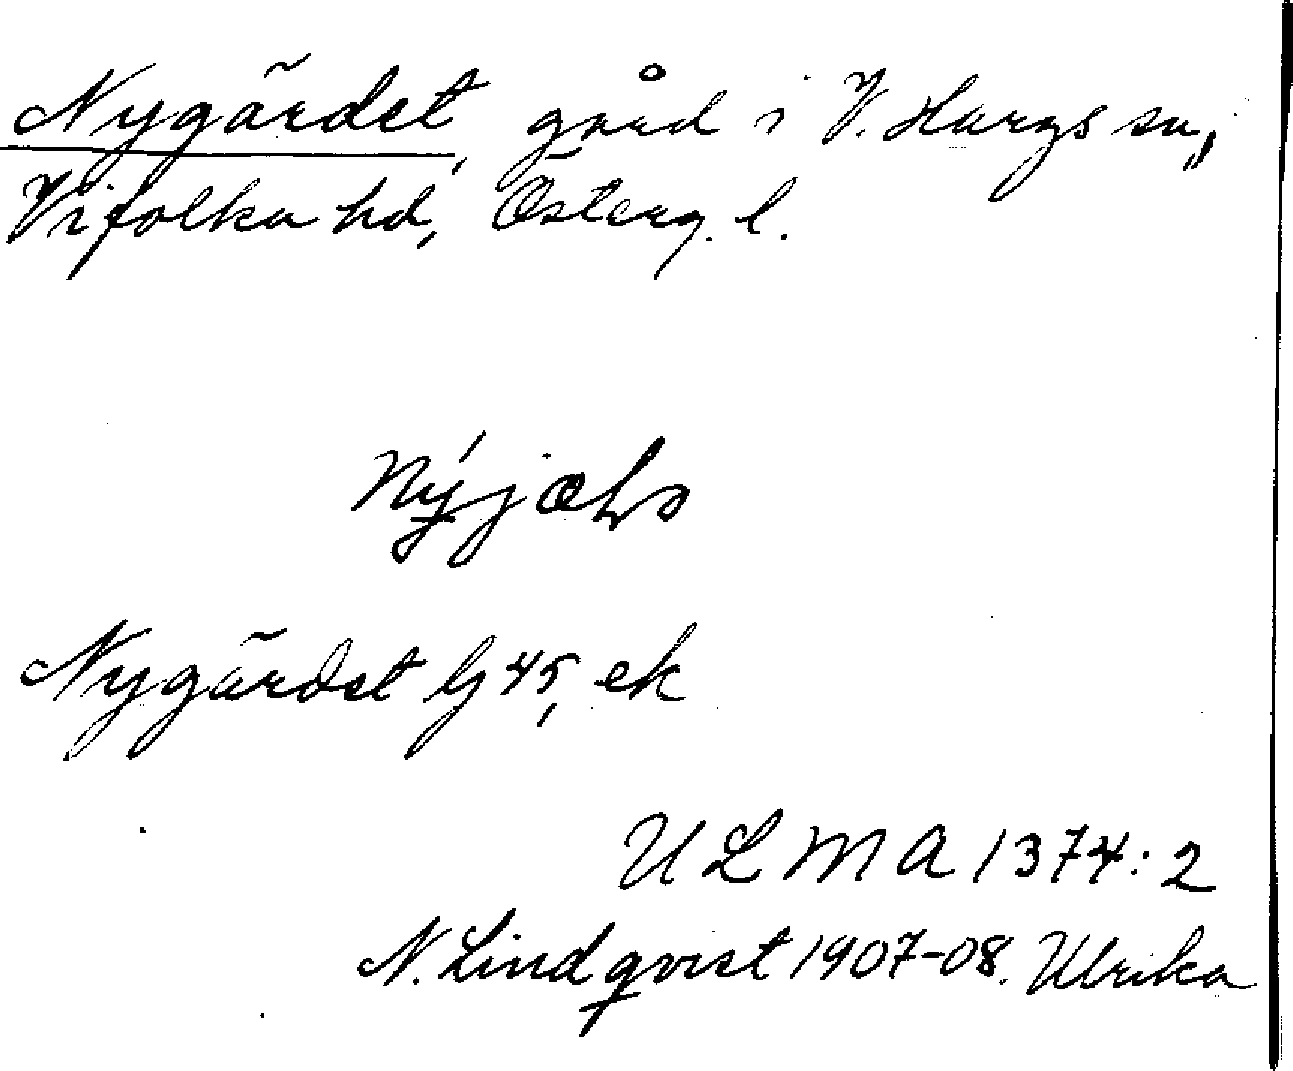 Nygärdet, gård i V. Hargs sn,
Vifolka hd, Österg. l.
Nygärdet Gj 45, ek
ULMA 1374:2
N. Lindqvist 1907-08. Ulrika